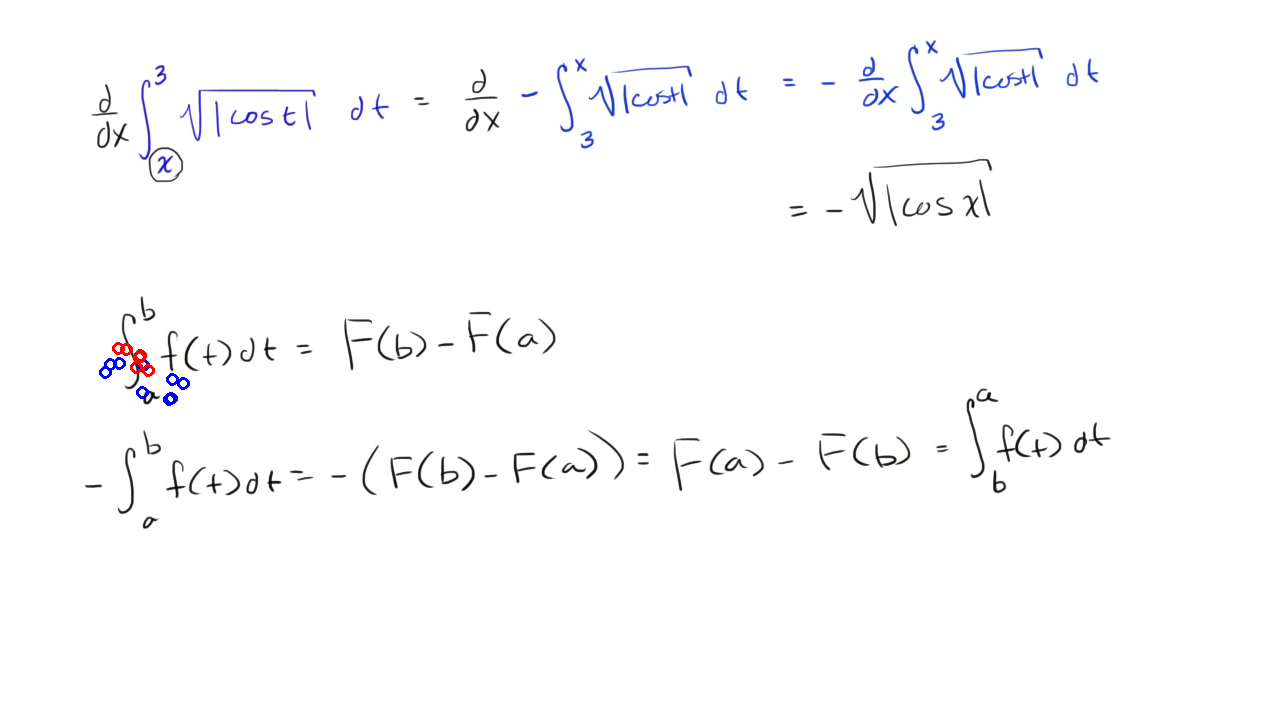 d/dx ∫_x^3 √|cos t| dt = d/dx - ∫_3^x √|cost| dt = - d/dx ∫_3^x √|cost| dt
= -√|cos x|
∫_a^b f(t)dt = F(b) - F(a)
- ∫_a^b f(t)dt = -(F(b) - F(a)) = F(a) - F(b) = ∫_b^a f(t) dt